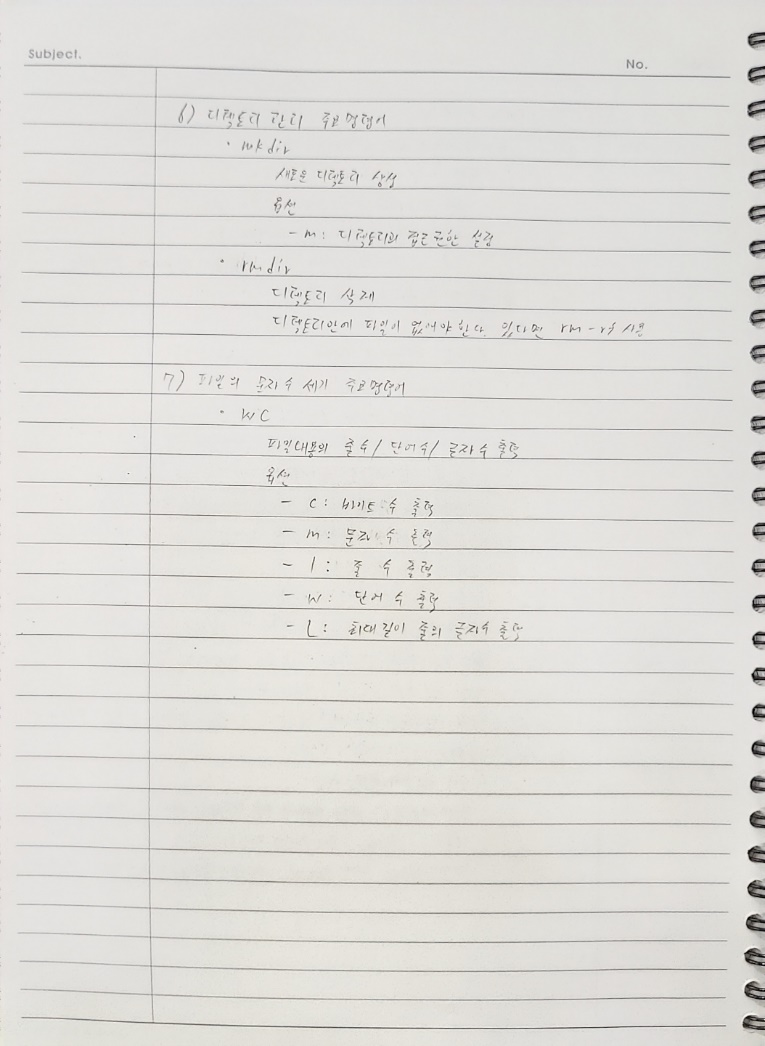 Subject.
No.
6) 디렉토리 관리 주요명령어
· mkdir
새로운 디렉토리 생성
옵션
- m: 디렉토리의 접근권한 설정
· rmdir
디렉토리 삭제
디렉토리안에 파일이 없어야 한다. 있다면 rm -rf 사용
7) 파일의 문자 수 세기 주요명령어
· wc
파일내용의 줄 수/ 단어수/ 글자 수 출력
옵션
- c: 바이트 수 출력
- m: 문자 수 출력
- l: 줄 수 출력
- w: 단어 수 출력
- L: 최대 길이 줄의 글자수 출력